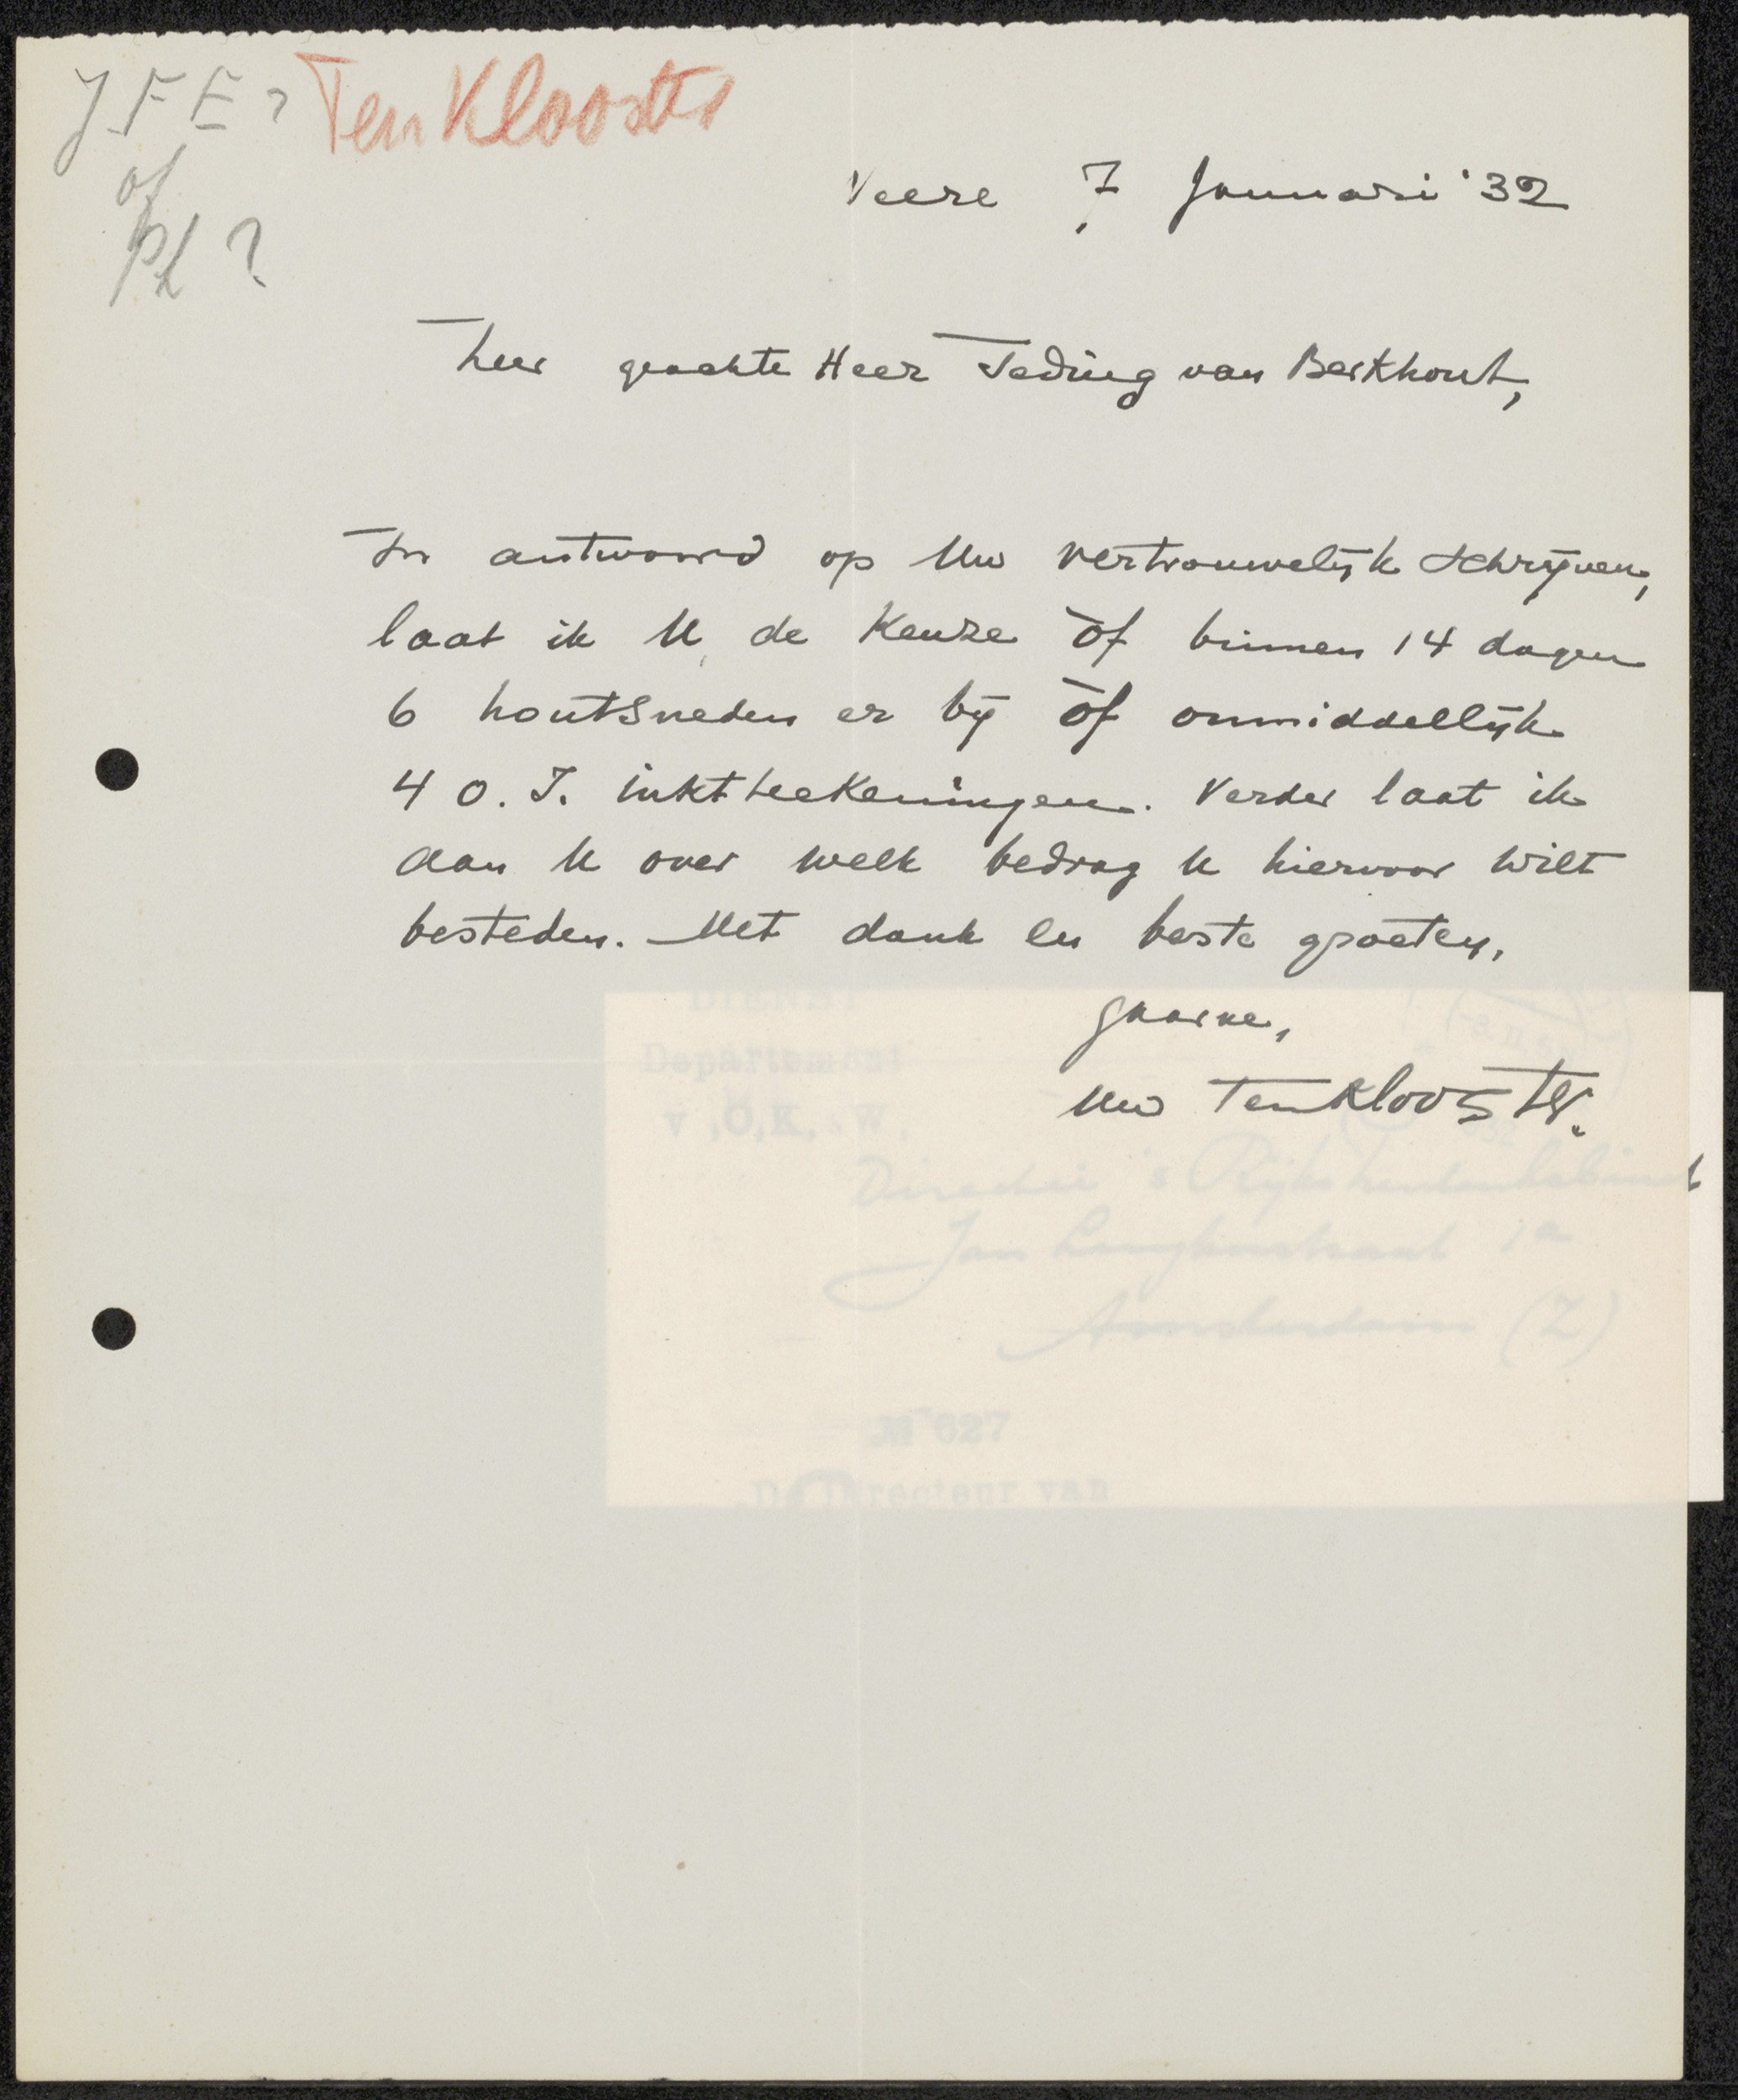 JFE? Ten Klooster
of
Veere 7 Januari '32
Zeer geachte Heer Teding van Berkhout,
In antwoord op Uw vertrouwelijk schrijven,
laat ik U de keuze òf binnen 14 dagen
6 houtsneden er bij òf onmiddellijk
4 O.I. inktteekeningen. Verder laat ik
aan U over welk bedrag U hiervoor wilt
besteden. Met dank en beste groeten,
gaarne,
Uw Ten Klooster.
DIENST
Departement
v.O,K,&W.
Directie 's Rijks Prentenkabinet
Jan Luykenstraat 1a
Amsterdam (Z)
№ 627
De Directeur van